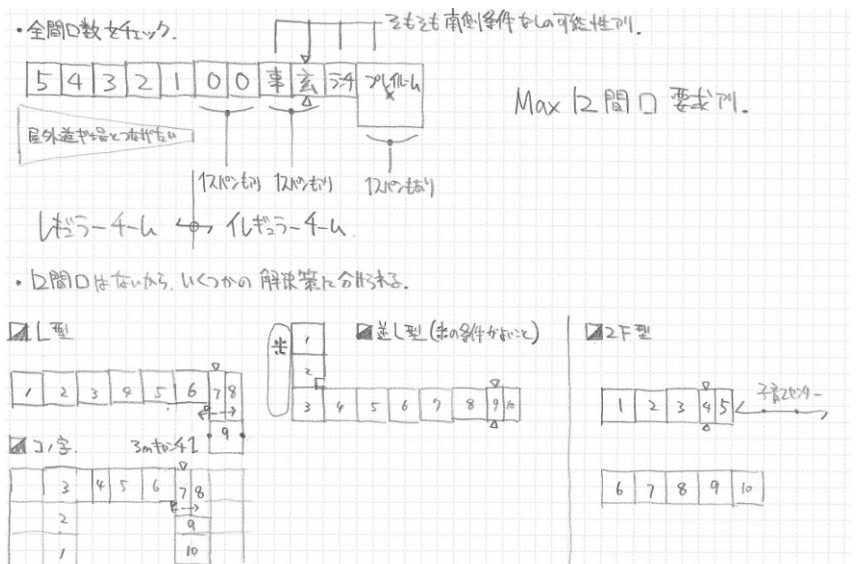 ・全間口数をチェック.
そもそも南側条件なしの可能性アリ.
5 4 3 2 1 0 0 事 玄 ランチ プレイルーム
Max 12間口 要求アリ.
屋外遊ギ場とつなげたい
1スパンもアリ 1スパンもアリ 1スパンもあり
レギュラーチーム イレギュラーチーム
・12間口はないから、いくつかの解決策に分けられる.
L型
1 2 3 4 5 6 7 8
9
コノ字.
3 4 5 6 7 8
2 9
1 10
逆L型(東の条件がよいこと)
東
1
2
3 4 5 6 7 8 9 10
2F型
1 2 3 4 5
子育てセンター
6 7 8 9 10